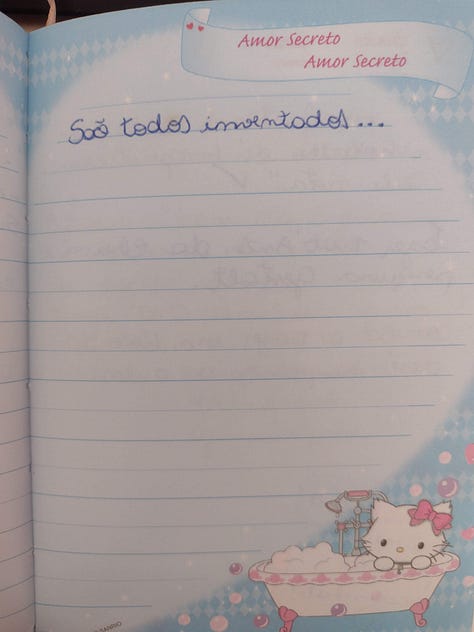 Amor Secreto
Amor Secreto
Saõ todos inventados...
SANRIO